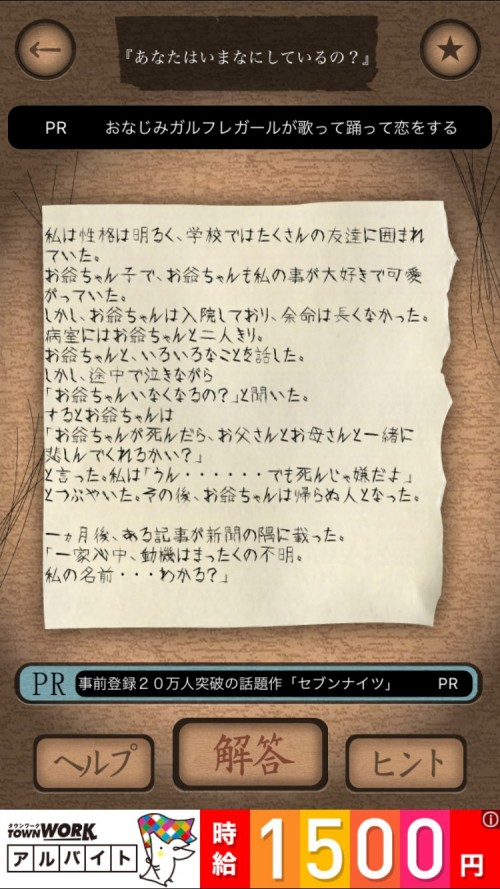 『あなたはいまなにしているの？』
PR おなじみガルフレガールが歌って踊って恋をする
私は性格は明るく、学校ではたくさんの友達に囲まれ
ていた。
お爺ちゃん子で、お爺ちゃんも私の事が大好きで可愛
がっていた。
しかし、お爺ちゃんは入院しており、余命は長くなかった。
病室にはお爺ちゃんと二人きり。
お爺ちゃんと、いろいろなことを話した。
しかし、途中で泣きながら
「お爺ちゃんいなくなるの？」と聞いた。
するとお爺ちゃんは
「お爺ちゃんが死んだら、お父さんとお母さんと一緒に
悲しんでくれるかい？」
と言った。私は「うん・・・・・・でも死んじゃ嫌だよ」
とつぶやいた。その後、お爺ちゃんは帰らぬ人となった。
一ヵ月後、ある記事が新聞の隅に載った。
「一家心中、動機はまったくの不明。
私の名前・・・わかる？」
PR 事前登録２０万人突破の話題作「セブンナイツ」 PR
ヘルプ
解答
ヒント
タウンワーク
TOWNWORK
アルバイト
時給 1500円